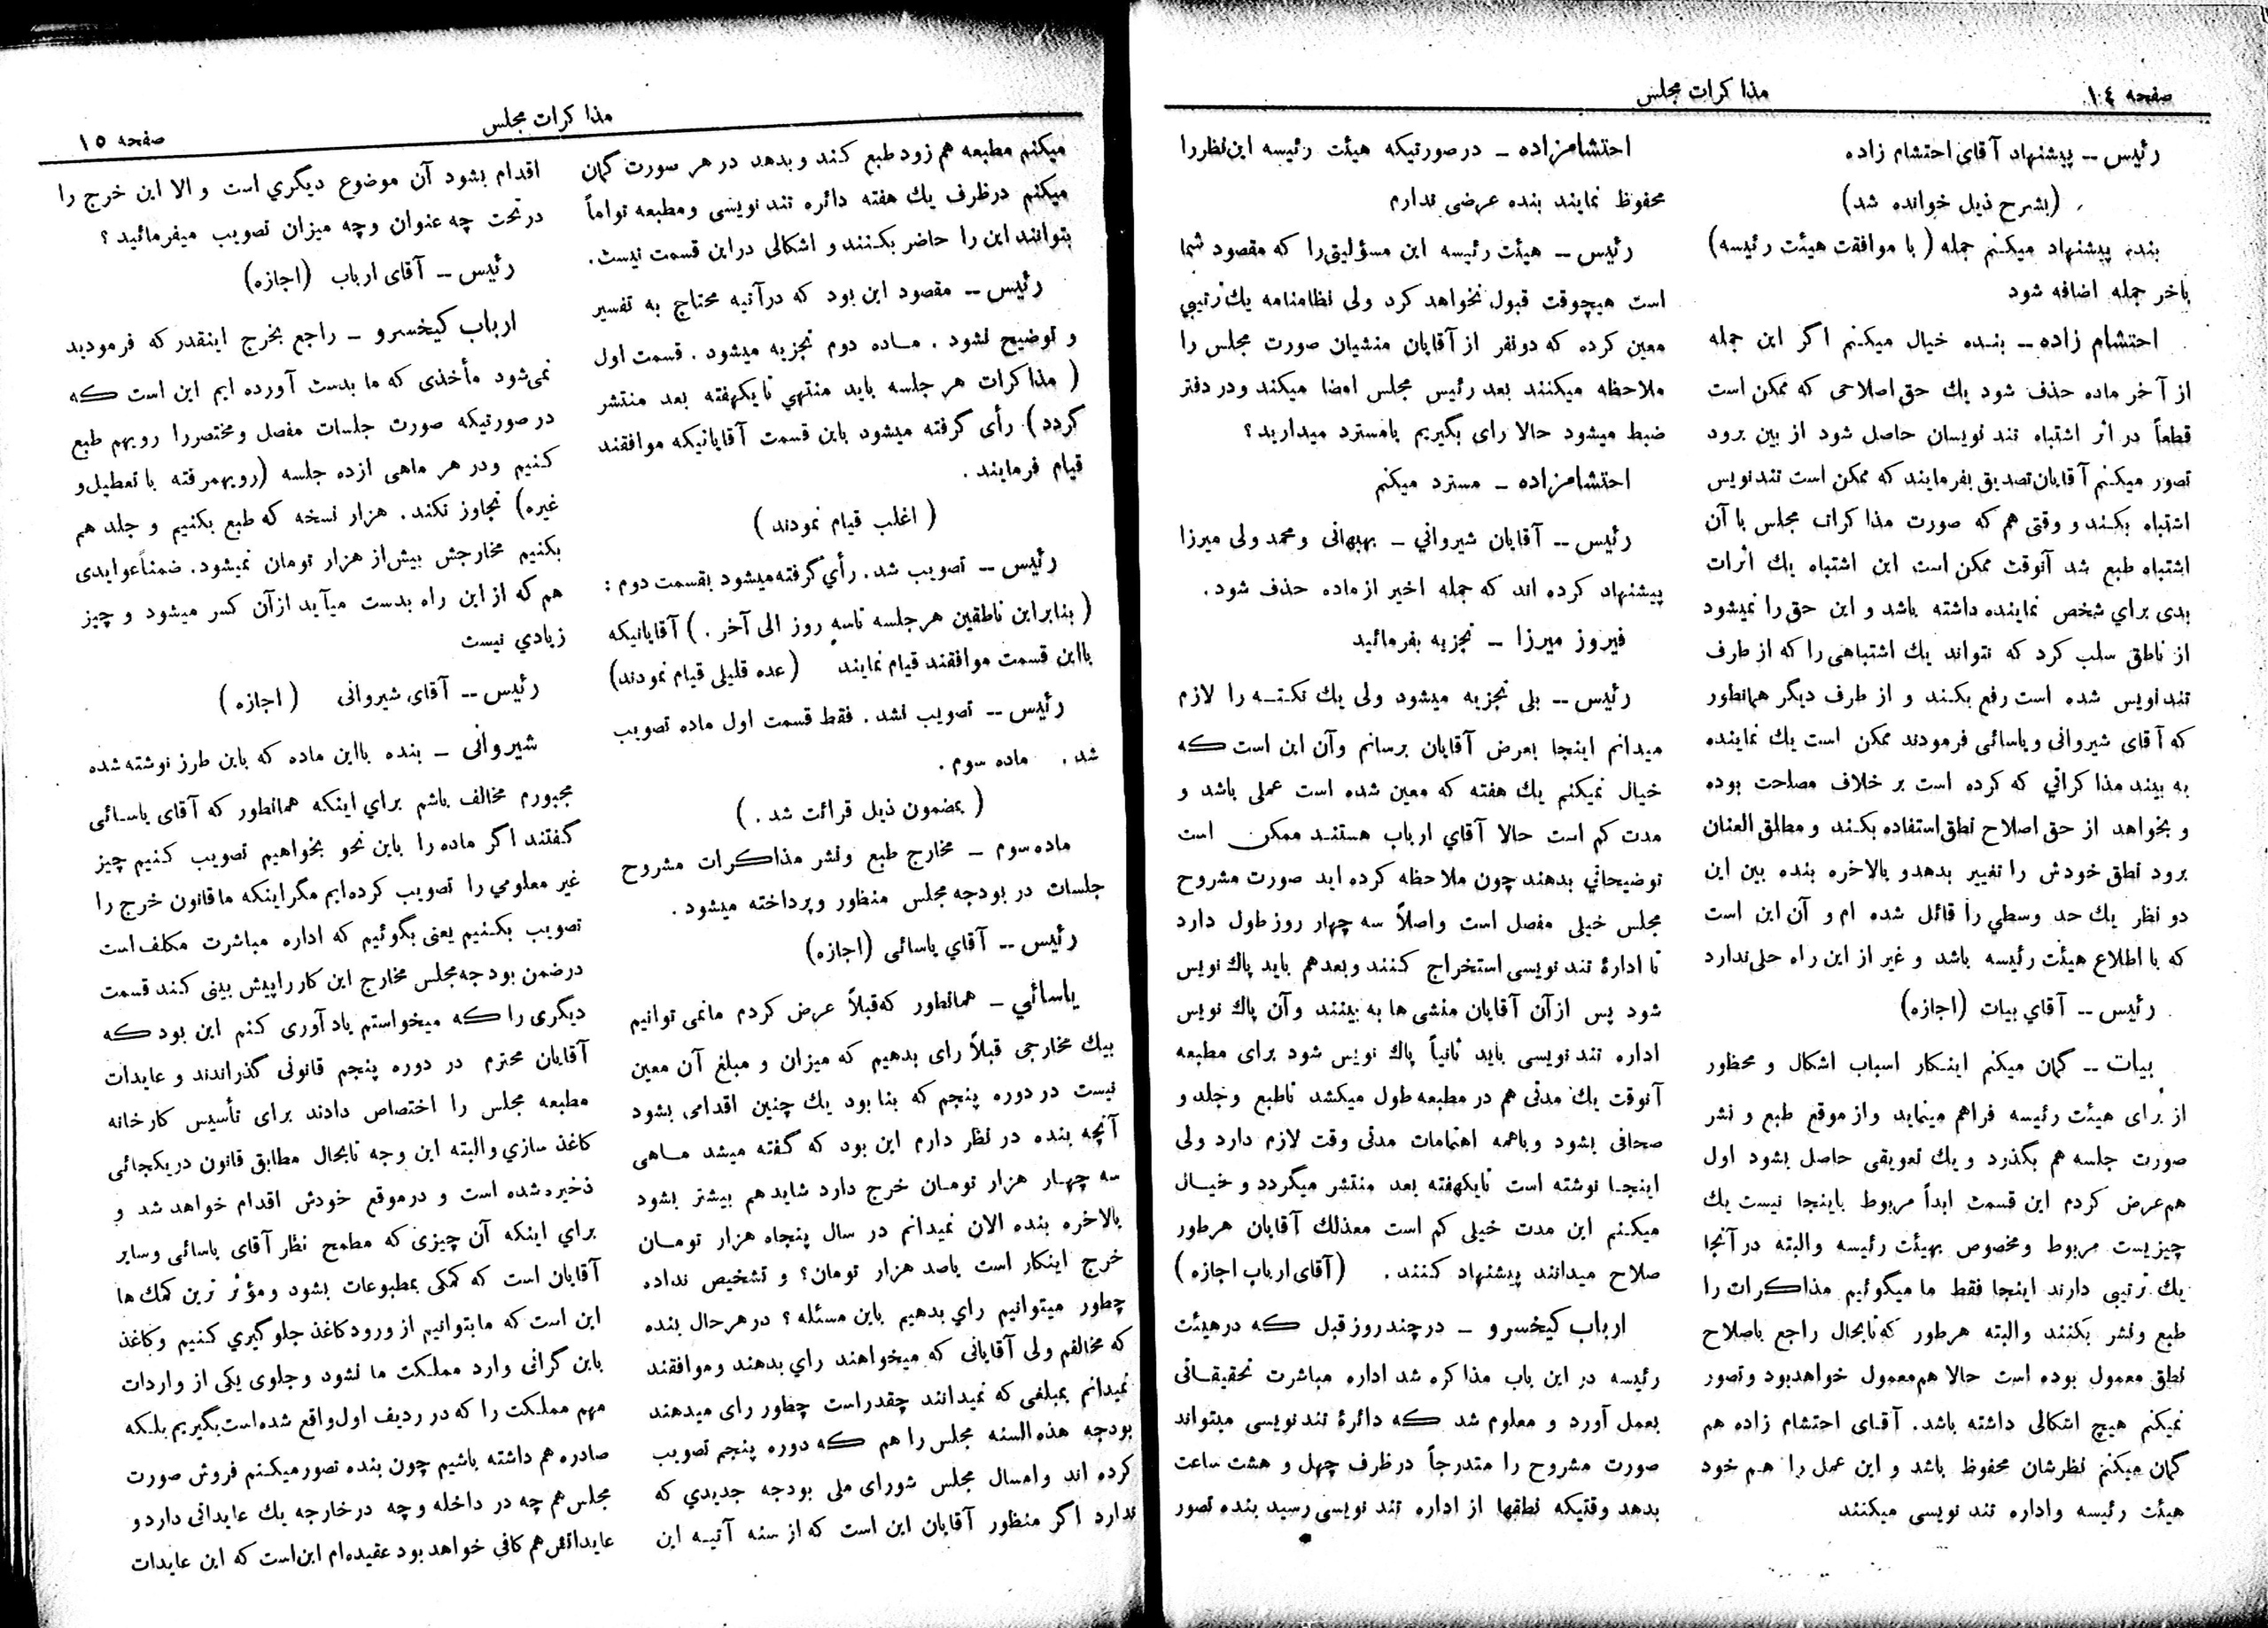 صفحه ١٤
مذاکرات مجلس
رئیس -- پیشنهاد آقای احتشام زاده
(بشرح ذیل خوانده شد)
بنده پیشنهاد میکنم جمله ( با موافقت هیئت رئیسه)
باخر جمله اضافه شود
احتشام زاده -- بنده خیال میکنم اگر این جمله
از آخر ماده حذف شود یك حق اصلاحی که ممکن است
قطعاً در اثر اشتباه تند نویسان حاصل شود از بین برود
تصور میکنم آقایان تصدیق بفرمایند که ممکن است تندنویس
اشتباه بکند و وقتی هم که صورت مذاکرات مجلس با آن
اشتباه طبع شد آنوقت ممکن است این اشتباه یك اثرات
بدی براي شخص نماینده داشته باشد و این حق را نمیشود
از ناطق سلب کرد که نتواند یك اشتباهی را که از طرف
تند نویس شده است رفع بکند و از طرف دیگر همانطور
که آقای شیروانی و یاسائی فرمودند ممکن است یك نماینده
به بیند مذاکراتي که کرده است بر خلاف مصلحت بوده
و بخواهد از حق اصلاح نطق استفاده بکند و مطلق العنان
برود نطق خودش را تغییر بدهد و بالاخره بنده بین این
دو نظر یك حد وسطي را قائل شده ام و آن این است
که با اطلاع هیئت رئیسه باشد و غیر از این راه حلی ندارد
رئیس -- آقاي بیات (اجازه)
بیات -- گمان میکنم اینکار اسباب اشکال و محظور
از برای هیئت رئیسه فراهم مینماید و از موقع طبع و نشر
صورت جلسه هم بگذرد و یك تعویقی حاصل بشود اول
هم عرض کردم این قسمت ابداً مربوط باینجا نیست یك
چیزیست مربوط ومخصوص بهیئت رئیسه والبته در آنجا
یك ترتیبی دارند اینجا فقط ما میگوئیم مذاکرات را
طبع ونشر بکنند والبته هرطور که تابحال راجع باصلاح
نطق معمول بوده است حالا هم معمول خواهد بود وتصور
نمیکنم هیچ اشکالی داشته باشد. آقای احتشام زاده هم
گمان میکنم نظرشان محفوظ باشد و این عمل را هم خود
هیئت رئیسه واداره تند نویسی میکنند
احتشامزاده -- در صورتیکه هیئت رئیسه این نظر را
محفوظ نمایند بنده عرضی ندارم
رئیس -- هیئت رئیسه این مسؤلیتی را که مقصود شما
است هیچوقت قبول نخواهد کرد ولی نظامنامه یك ترتیبي
معین کرده که دو نفر از آقایان منشیان صورت مجلس را
ملاحظه میکنند بعد رئیس مجلس امضا میکند ودر دفتر
ضبط میشود حالا رای بگیریم یا مسترد میدارید؟
احتشامزاده -- مسترد میکنم
رئیس -- آقایان شیرواني -- بهبهانی ومحمد ولی میرزا
پیشنهاد کرده اند که جمله اخیر از ماده حذف شود.
فیروز میرزا -- تجزیه بفرمائید
رئیس -- بلی تجزیه میشود ولی یك نکته را لازم
میدانم اینجا بعرض آقایان برسانم وآن این است که
خیال نمیکنم یك هفته که معین شده است عملی باشد و
مدت کم است حالا آقاي ارباب هستند ممکن است
توضیحاتي بدهند چون ملاحظه کرده اید صورت مشروح
مجلس خیلی مفصل است واصلاً سه چهار روز طول دارد
تا ادارۀ تند نویسی استخراج کنند و بعد هم باید پاك نویس
شود پس از آن آقایان منشی ها به بینند وآن پاك نویس
اداره تند نویسی باید ثانیاً پاك نویس شود برای مطبعه
آنوقت یك مدتی هم در مطبعه طول میکشد تاطبع وجلد و
صحافی بشود وباهمه اهتمامات مدتی وقت لازم دارد ولی
اینجا نوشته است تایکهفته بعد منتشر میگردد و خیال
میکنم این مدت خیلی کم است معذلك آقایان هرطور
صلاح میدانند پیشنهاد کنند. (آقای ارباب اجازه)
ارباب کیخسرو -- در چند روز قبل که در هیئت
رئیسه در این باب مذاکره شد اداره مباشرت تحقیقاتی
بعمل آورد و معلوم شد که دائرۀ تندنویسی میتواند
صورت مشروح را متدرجاً در ظرف چهل و هشت ساعت
بدهد وقتیکه نطقها از اداره تند نویسی رسید بنده تصور
مذاکرات مجلس
صفحه ١٥
میکنم مطبعه هم زود طبع کند و بدهد در هر صورت گمان
میکنم درظرف یك هفته دائره تند نویسی ومطبعه تواماً
بتوانند این را حاضر بکنند و اشکالی در این قسمت نیست.
رئیس -- مقصود این بود که در آتیه محتاج به تفسیر
و توضیح نشود. ماده دوم تجزیه میشود. قسمت اول
( مذاکرات هر جلسه باید منتهي تایکهفته بعد منتشر
گردد) رأی گرفته میشود باین قسمت آقایانیکه موافقند
قیام فرمایند.
( اغلب قیام نمودند )
رئیس -- تصویب شد. رأي گرفته میشود بقسمت دوم:
( بنابراین ناطقین هر جلسه تاسه روز الی آخر. ) آقایانیکه
بااین قسمت موافقند قیام نمایند (عده قلیلی قیام نمودند)
رئیس -- تصویب نشد. فقط قسمت اول ماده تصویب
شد. ماده سوم.
( بمضمون ذیل قرائت شد. )
ماده سوم -- مخارج طبع ونشر مذاکرات مشروح
جلسات در بودجه مجلس منظور و پرداخته میشود.
رئیس -- آقاي یاسائی (اجازه)
یاسائي -- همانطور که قبلاً عرض کردم مانمی توانیم
بیك مخارجی قبلاً رای بدهیم که میزان و مبلغ آن معین
نیست در دوره پنجم که بنا بود یك چنین اقدامی بشود
آنچه بنده در نظر دارم این بود که گفته میشد ماهی
سه چهار هزار تومان خرج دارد شاید هم بیشتر بشود
بالاخره بنده الان نمیدانم در سال پنجاه هزار تومان
خرج اینکار است یاصد هزار تومان؟ و تشخیص نداده
چطور میتوانیم راي بدهیم باین مسئله؟ در هر حال بنده
که مخالفم ولی آقایانی که میخواهند راي بدهند وموافقند
نمیدانم بمبلغی که نمیدانند چقدر است چطور رای میدهند
بودجه هذه السنه مجلس را هم که دوره پنجم تصویب
کرده اند وامسال مجلس شورای ملی بودجه جدیدي که
ندارد اگر منظور آقایان این است که از سنه آتیه این
اقدام بشود آن موضوع دیگري است و الا این خرج را
در تحت چه عنوان وچه میزان تصویب میفرمائید؟
رئیس -- آقای ارباب (اجازه)
ارباب کیخسرو -- راجع بخرج اینقدر که فرمودید
نمی شود مأخذی که ما بدست آورده ایم این است که
در صورتیکه صورت جلسات مفصل ومختصر را رویهم طبع
کنیم ودر هر ماهی ازده جلسه (رویهمرفته با تعطیل و
غیره) تجاوز نکند. هزار نسخه که طبع بکنیم و جلد هم
بکنیم مخارجش بیش از هزار تومان نمیشود. ضمناً عوایدی
هم که از این راه بدست میآید از آن کسر میشود و چیز
زیادي نیست
رئیس -- آقای شیروانی (اجازه)
شیروانی -- بنده بااین ماده که باین طرز نوشته شده
مجبورم مخالف باشم براي اینکه همانطور که آقای یاسائی
گفتند اگر ماده را باین نحو بخواهیم تصویب کنیم چیز
غیر معلومي را تصویب کرده ایم مگر اینکه ماقانون خرج را
تصویب بکنیم یعنی بگوئیم که اداره مباشرت مکلف است
در ضمن بودجه مجلس مخارج این کار را پیش بینی کند قسمت
دیگری را که میخواستم یاد آوری کنم این بود که
آقایان محترم در دوره پنجم قانونی گذراندند و عایدات
مطبعه مجلس را اختصاص دادند برای تأسیس کارخانه
کاغذ سازي والبته این وجه تابحال مطابق قانون در یکجائی
ذخیره شده است و در موقع خودش اقدام خواهد شد و
براي اینکه آن چیزی که مطمح نظر آقای یاسائی وسایر
آقایان است که کمکی بمطبوعات بشود ومؤثر ترین کمك ها
این است که ما بتوانیم از ورود کاغذ جلوگیري کنیم وکاغذ
باین گرانی وارد مملکت ما نشود وجلوی یکی از واردات
مهم مملکت را که در ردیف اول واقع شده است بگیریم بلکه
صادره هم داشته باشیم چون بنده تصور میکنم فروش صورت
مجلس هم چه در داخله و چه در خارجه یك عایداتی دارد و
عایداتش هم کافي خواهد بود عقیده ام این است که این عایدات